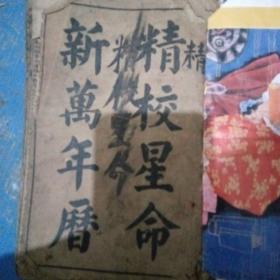 精校星命
新萬年曆
精校星命
精